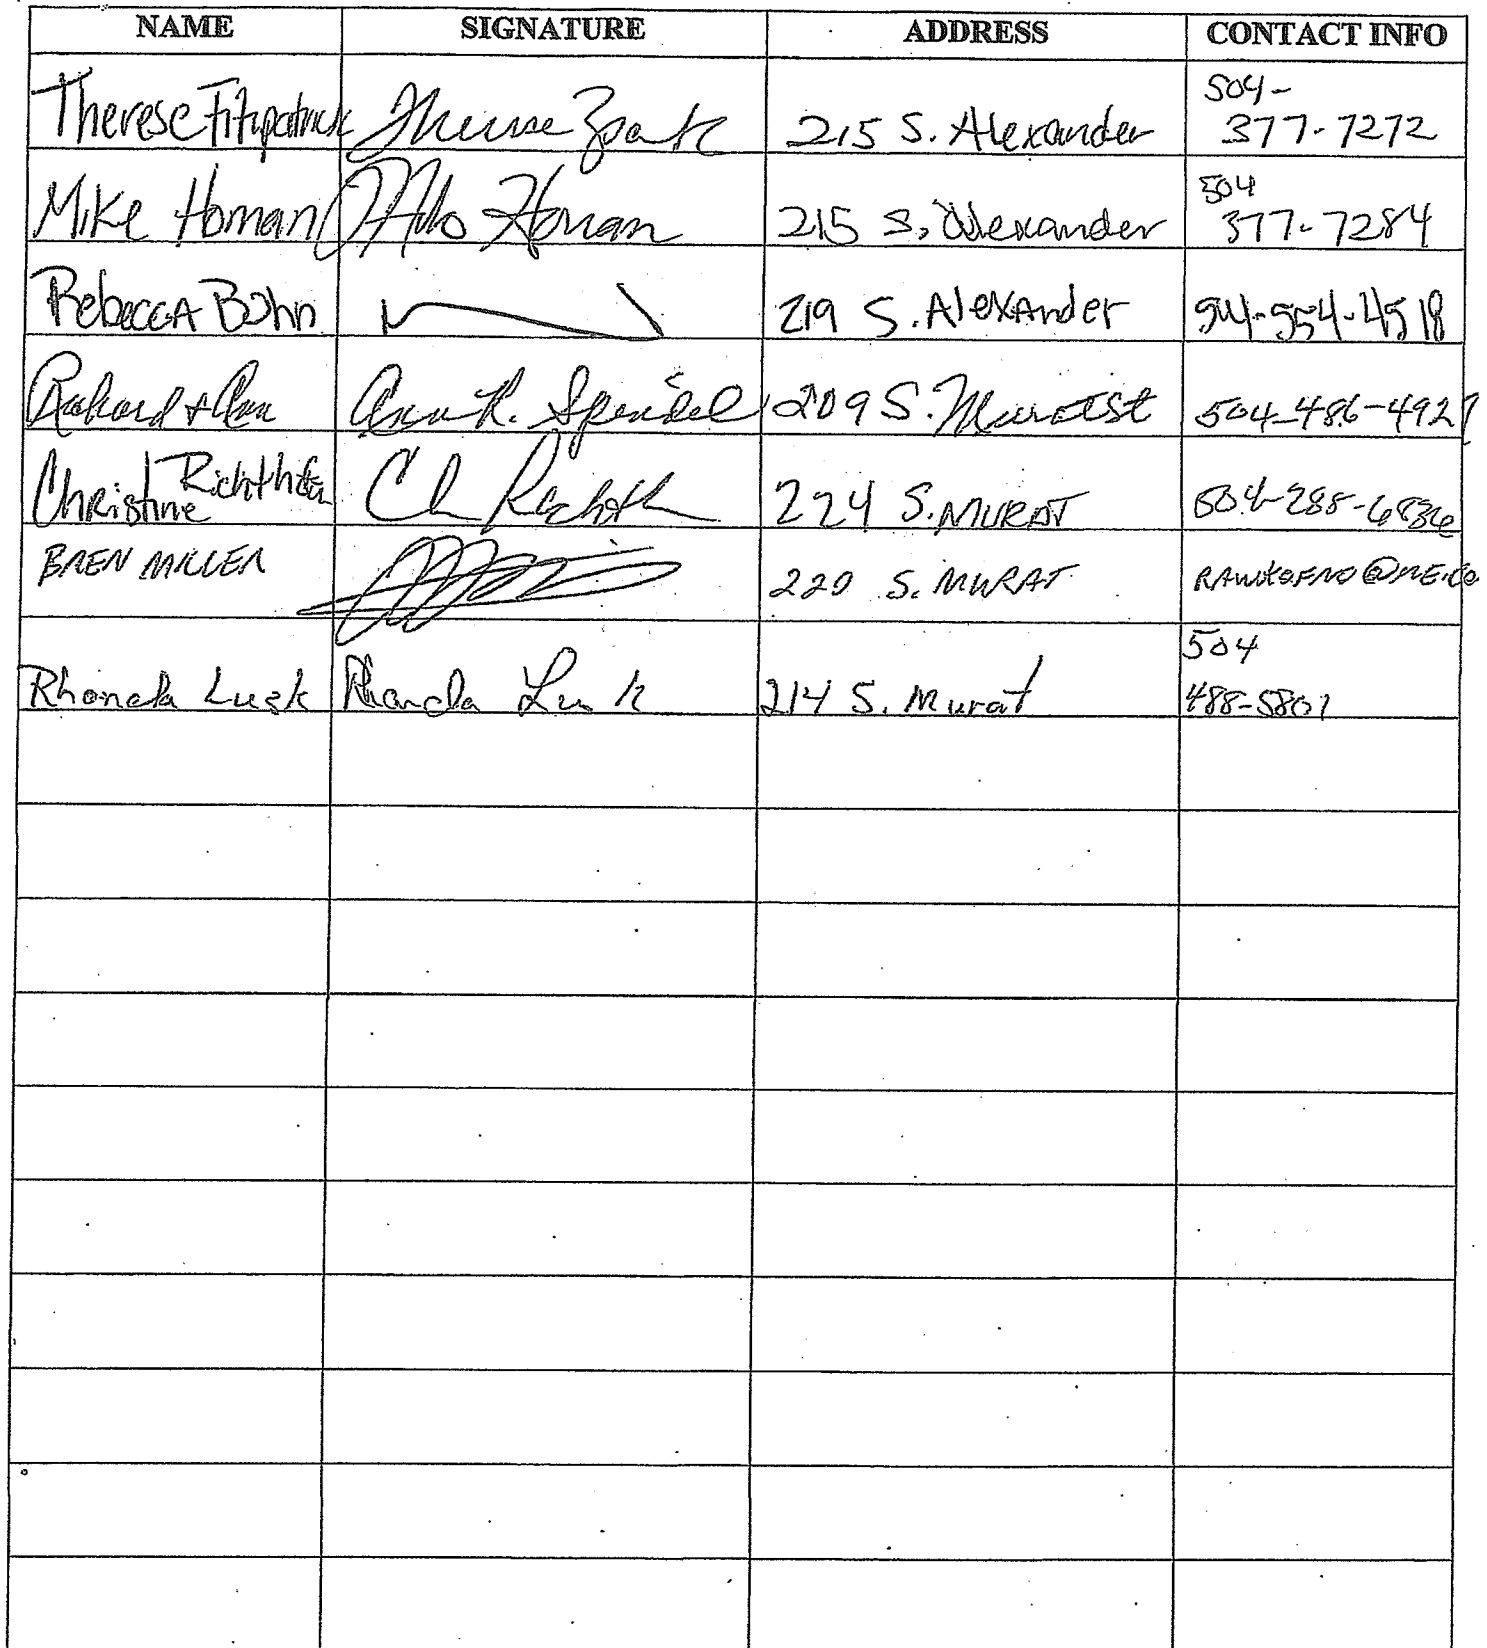 NAME SIGNATURE ADDRESS CONTACT INFO
504-
Therese Fitzpatrick 215 S. Alexander 377-7272
504
Mike Homan Mike Homan 215 S. Alexander 377-7284
Rebecca Bohn 219 S. Alexander 504-554-4518
Richard + Ann Ann R. Speidel 209 S. Murat St 504-486-4927
Christine 224 S. MURAT 504-288-6836
BREN MILLER 220 S. MURAT
504
Rhonda Lusk Rhonda Lusk 214 S. Murat 488-5801